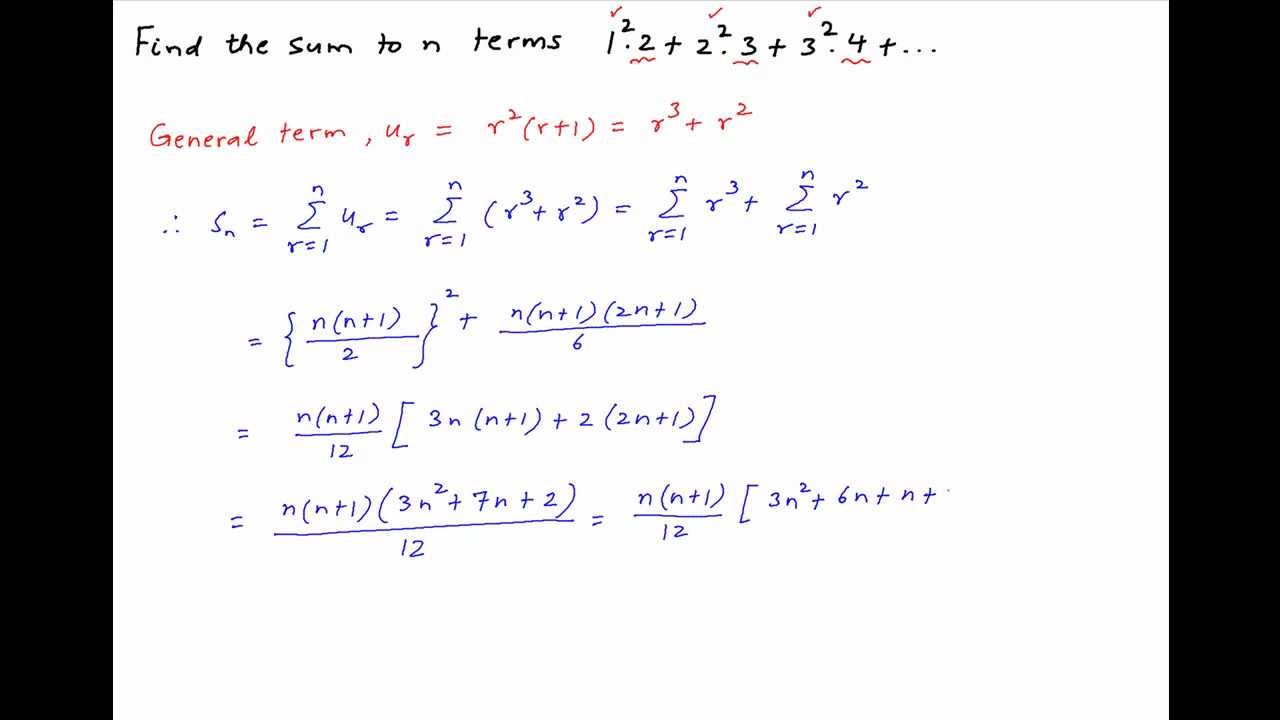 Find the sum to n terms 1².2 + 2².3 + 3².4 + ...
General term, uᵣ = r²(r+1) = r³ + r²
∴ Sₙ = ∑ⁿᵣ₌₁ uᵣ = ∑ⁿᵣ₌₁ (r³ + r²) = ∑ⁿᵣ₌₁ r³ + ∑ⁿᵣ₌₁ r²
= { n(n+1) / 2 }² + n(n+1)(2n+1) / 6
= n(n+1) / 12 [ 3n(n+1) + 2(2n+1) ]
= n(n+1)(3n² + 7n + 2) / 12 = n(n+1) / 12 [ 3n² + 6n + n +